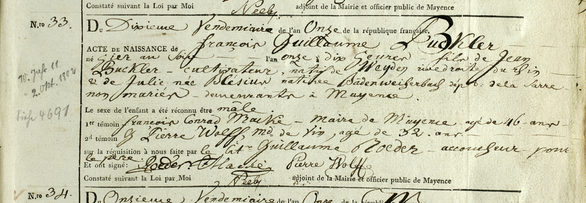 Constaté suivant la Loi par Moi adjoint de la Mairie et officier public de Mayence
N.ro 33. Du Dixieme Vendemiaire de l'an Onze de la république française.
ACTE DE NAISSANCE de françois Guillaume Buckler
né hier au soir l'an onze à dix heures fils de Jean
Buckler cultivateur, natif de Weyden rive droite du Rhin
et de Julie née Blesius native de Badenweiherbach dép. de la Sarre
non mariés demeurants à Mayence
Le sexe de l'enfant a été reconnu être male.
1er témoin françois Conrad Macké - Maire de Mayence agé de 46 ans
2d témoin Pierre Wolff md. de vin, agé de 32 ans
sur la réquisition à nous faite par le Guillaume Roeder accoucheur pour
le père
Et ont signé: Roeder Macké Pierre Wolff
Constaté suivant la Loi par Moi adjoint de la Mairie et officier public de Mayence
N.ro 34. Du Onzieme Vendemiaire de l'an Onze